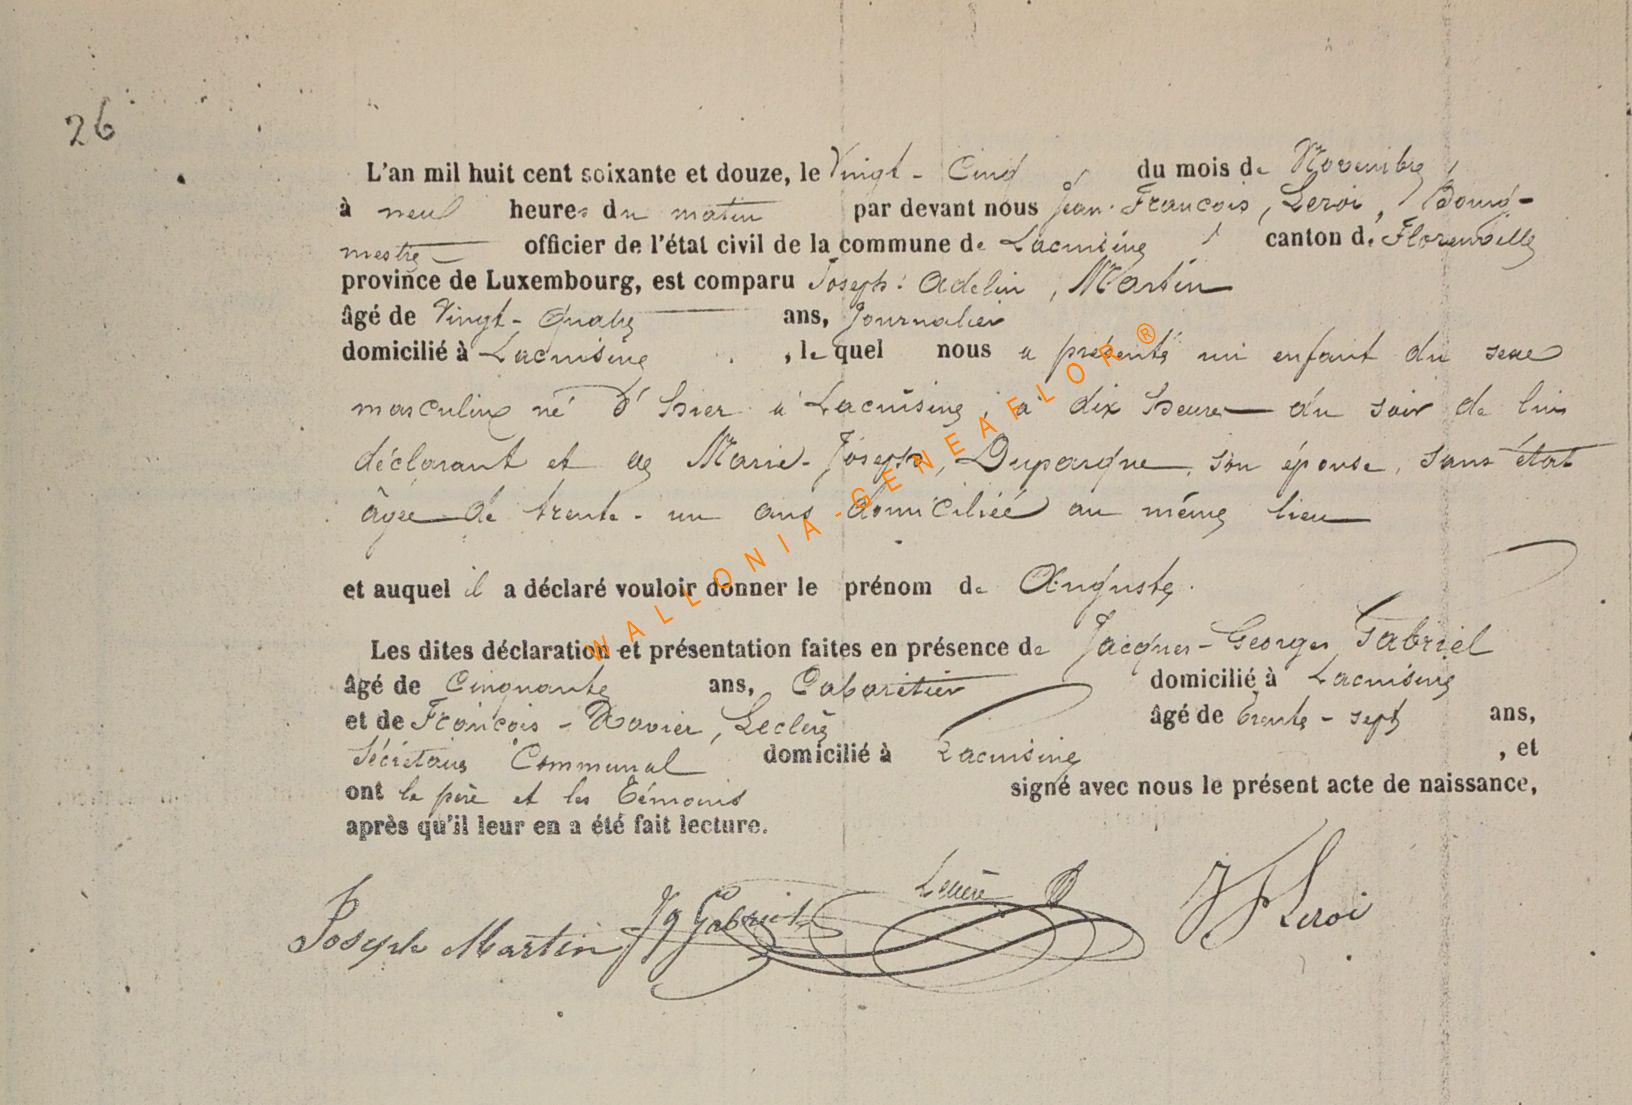 26
L'an mil huit cent soixante et douze, le Vingt - Cinq du mois de Novembre,
à neuf heures du matin par devant nous Jean-François, Leroi, Bourg-
mestre officier de l'état civil de la commune de Lacuisine canton de Florenville
province de Luxembourg, est comparu Joseph-Adelin, Martin
âgé de Vingt-Quatre ans, Journalier
domicilié à Lacuisine, lequel nous a présenté un enfant du sexe
masculin né d'hier à Lacuisine, à dix heures du soir de lui
déclarant et de Marie-Joseph, Duparque, son épouse, sans état
âgée de trente-un ans domiciliée au même lieu
et auquel il a déclaré vouloir donner le prénom de Auguste.
Les dites déclaration et présentation faites en présence de Jacques-Georges Gabriel
âgé de Cinquante ans, Cabaretier domicilié à Lacuisine
et de François-Xavier, Leclère âgé de trente-sept ans,
Sécrétaire Communal domicilié à Lacuisine, et
ont le père et les témoins signé avec nous le présent acte de naissance,
après qu'il leur en a été fait lecture.
Joseph Martin Jg Gabriel Leclère JF Leroi
WALLONIA-GENEAFLOR®